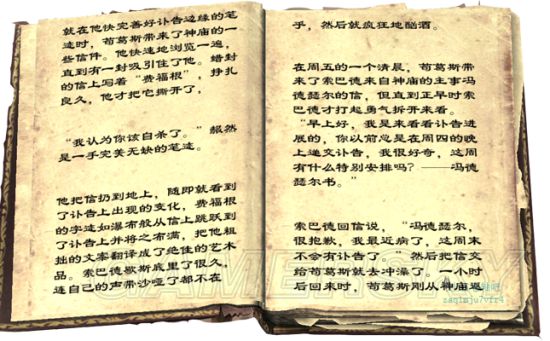 就在他快完善好讣告边缘的笔
迹时，苟葛斯带来了神庙的一
些信件。他快速地浏览一遍，
直到有一封吸引住了他。蜡封
的信上写着“费福根”，挣扎
良久，他才把它撕开了，
“我认为你该自杀了。”赫然
是一手完美无缺的笔迹。
他把信扔到地上，随即就看到
了讣告上出现的变化，费福根
的字迹如瀑布般从信上跳跃到
了讣告上并将之布满，把他粗
拙的文案翻译成了绝佳的艺术
品。索巴德歇斯底里了很久，
连自己的声带沙哑了都不在
乎，然后就疯狂地酗酒。
在周五的一个清晨，苟葛斯带
来了索巴德来自神庙的主事冯
德瑟尔的信，但直到正早时索
巴德才打起勇气拆开来看。
“早上好，我是来看看讣告进
展的，你以前总是在周四的晚
上递交讣告，我很好奇，这周
有什么特别安排吗？——冯德
瑟尔书。”
索巴德回信说，“冯德瑟尔，
很抱歉，我最近病了，这周末
不会有讣告了。”然后把信交
给苟葛斯就去冲澡了。一小时
后回来时，苟葛斯刚从神庙返
GAMERSKY
zaqimju7vfr4